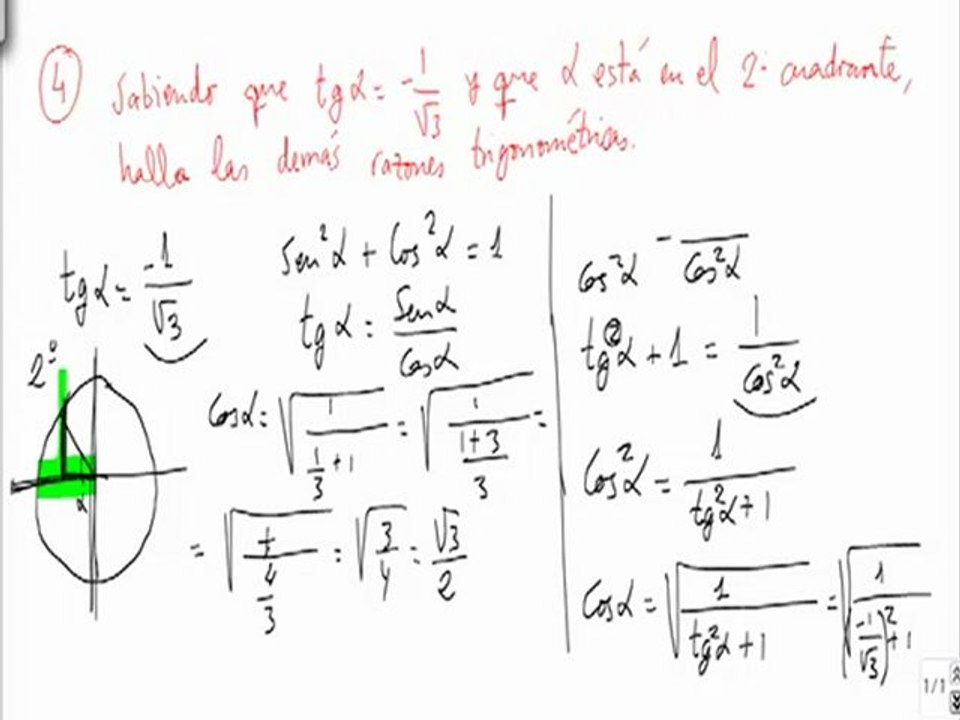 4 Sabiendo que tg α = -1/√3 y que α está en el 2º cuadrante,
halla las demás razones trigonométricas.
tg α = -1/√3
2º
α
sen²α + cos²α = 1
tg α = sen α / cos α
cos α = √(1/(1/3 + 1)) = √(1/((1+3)/3)) =
= √(1/(4/3)) = √(3/4) = √3/2
cos²α - /cos²α
tg²α + 1 = 1/cos²α
cos²α = 1/(tg²α + 1)
cos α = √(1/(tg²α + 1)) = √(1/((-1/√3)² + 1))
1/1